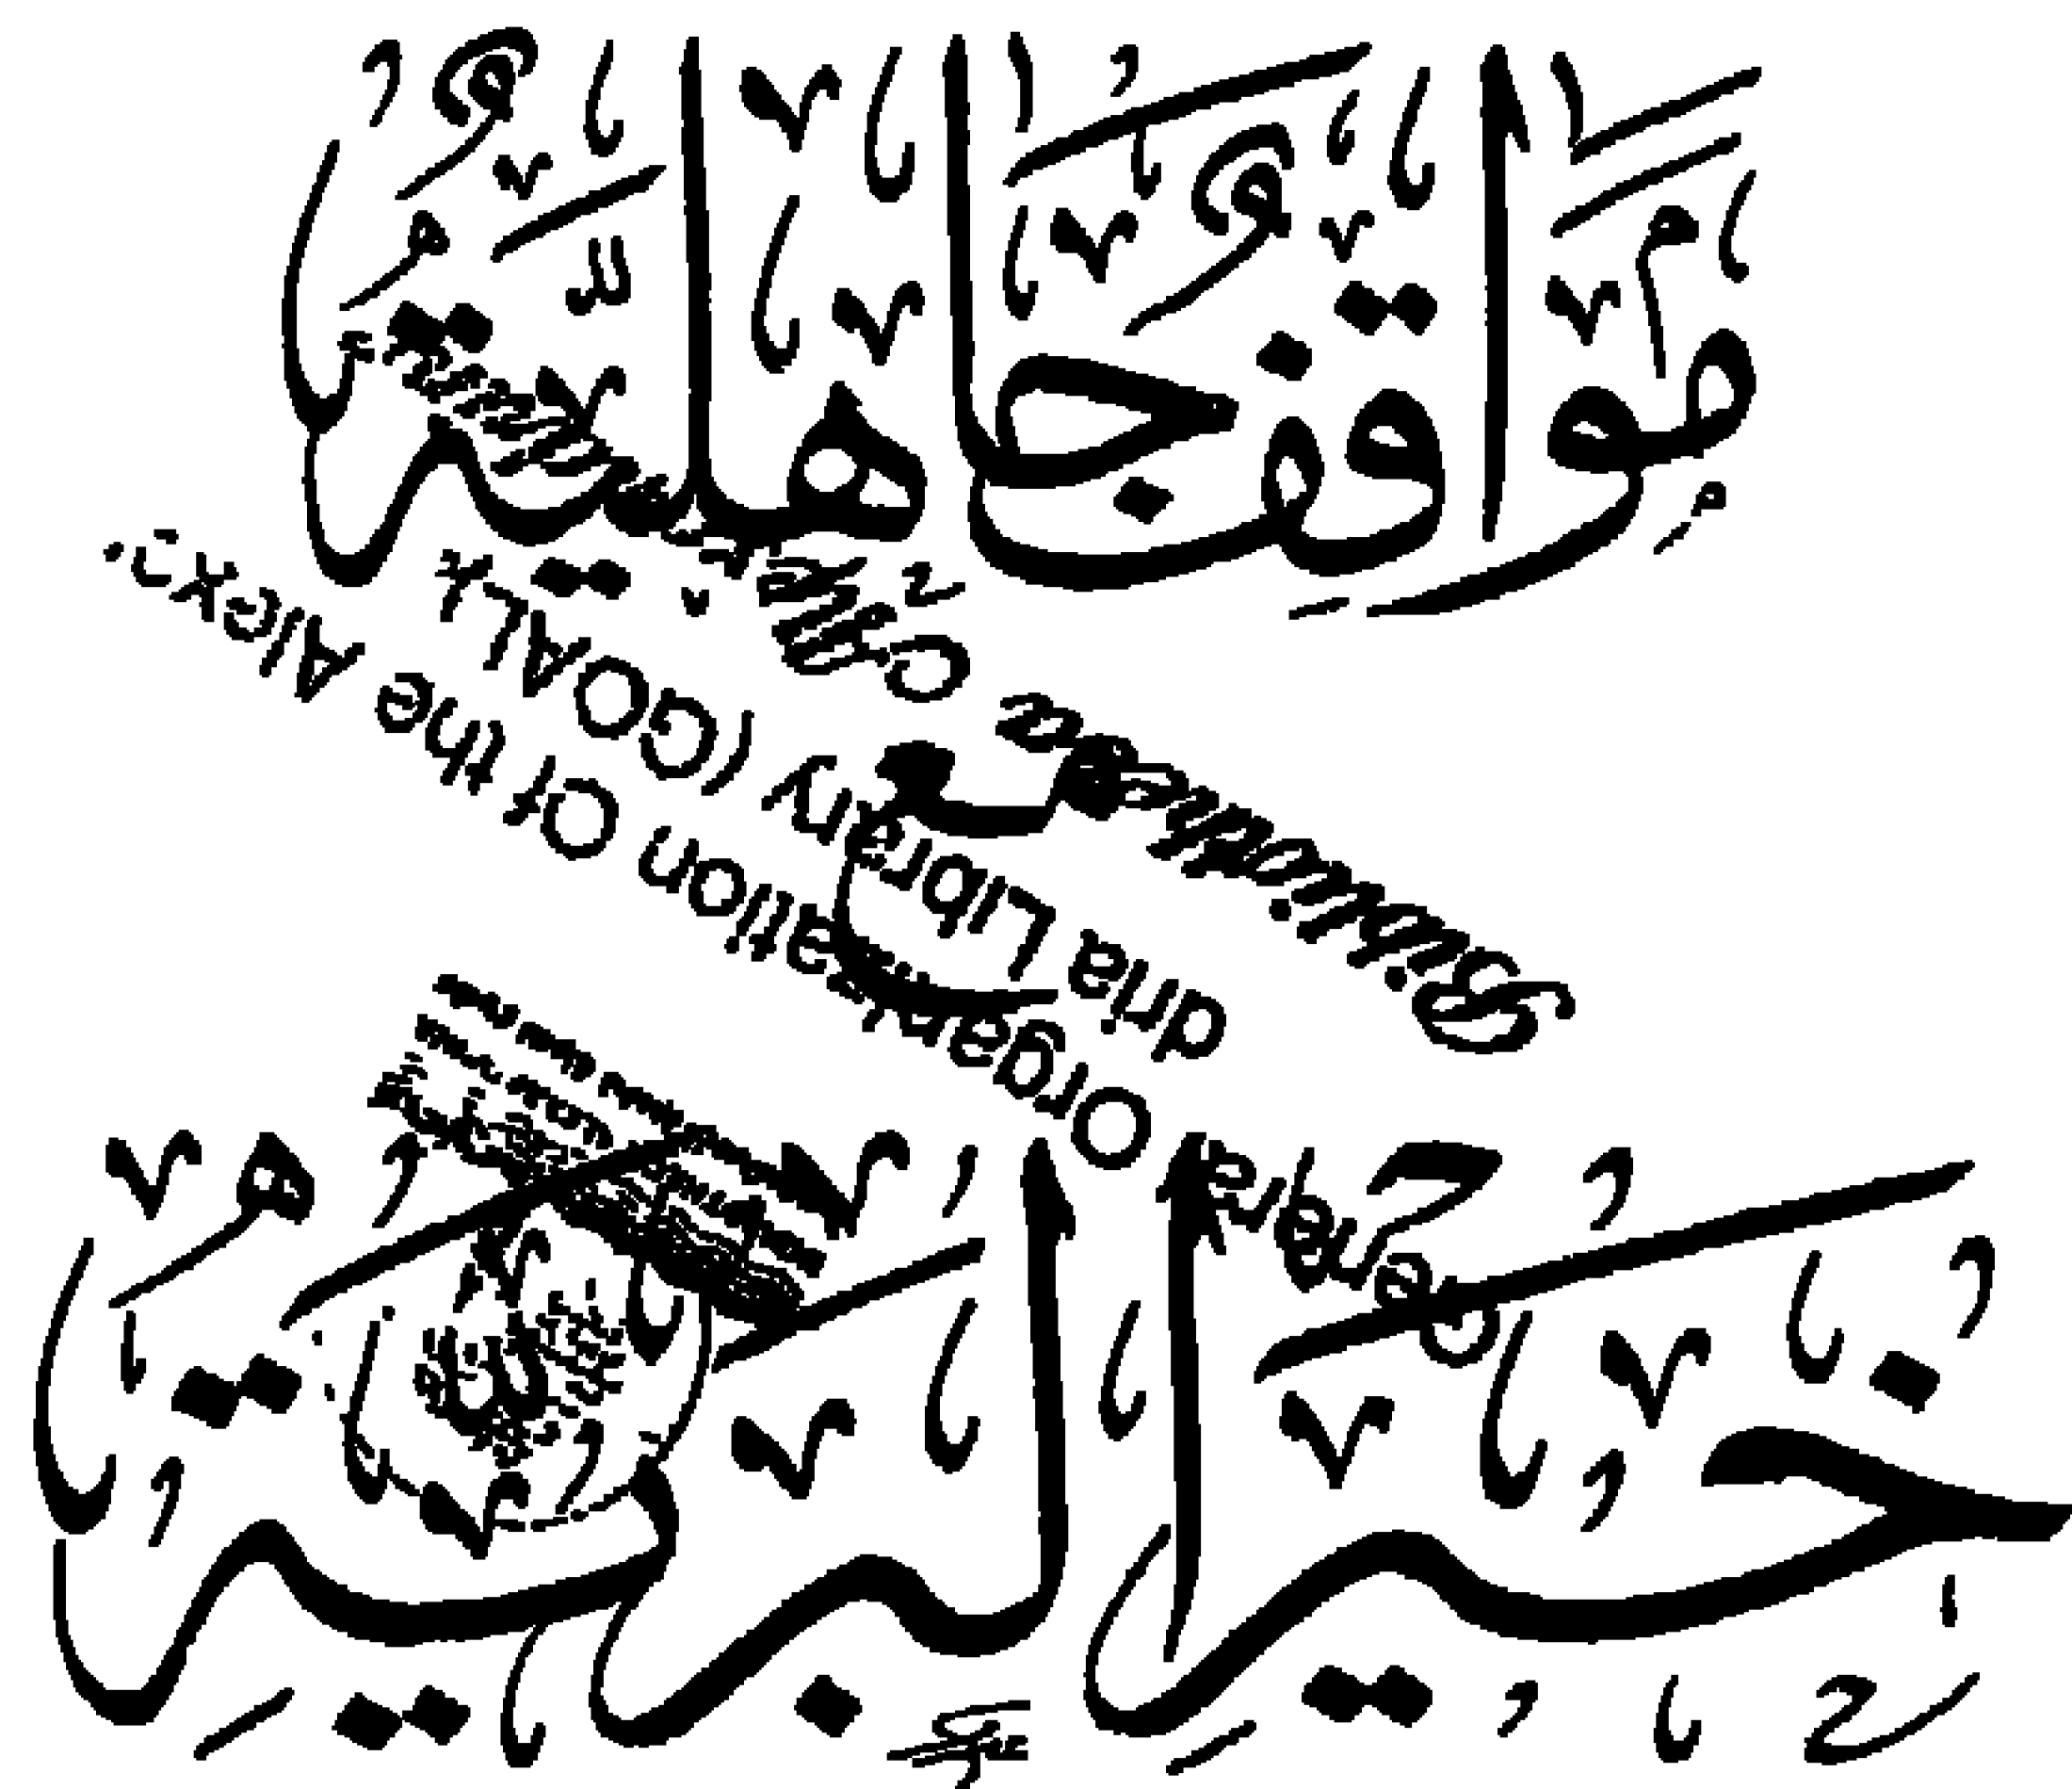 مواقف جاهلية
مع
خير البرية
General Organization Of the Alexandria Library (GOAL)
Bibliotheca Alexandrina